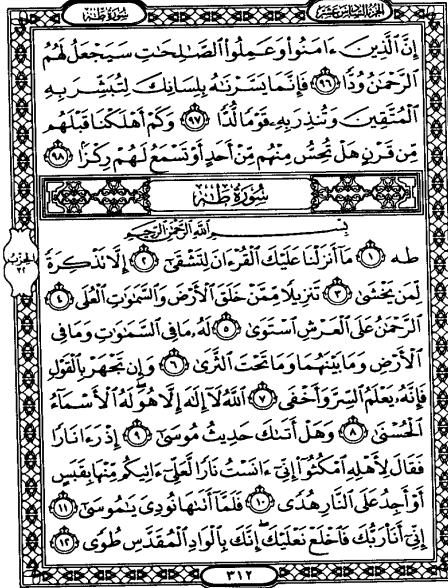 الجزء السادس عشر
سورة طه
إِنَّ ٱلَّذِينَ ءَامَنُوا۟ وَعَمِلُوا۟ ٱلصَّـٰلِحَـٰتِ سَيَجْعَلُ لَهُمُ
ٱلرَّحْمَـٰنُ وُدًّا ٩٦ فَإِنَّمَا يَسَّرْنَـٰهُ بِلِسَانِكَ لِتُبَشِّرَ بِهِ
ٱلْمُتَّقِينَ وَتُنذِرَ بِهِۦ قَوْمًا لُّدًّا ٩٧ وَكَمْ أَهْلَكْنَا قَبْلَهُم
مِّن قَرْنٍ هَلْ تُحِسُّ مِنْهُم مِّنْ أَحَدٍ أَوْ تَسْمَعُ لَهُمْ رِكْزًۢا ٩٨
سُورَةُ طٰهٰ
بِسْمِ ٱللَّهِ ٱلرَّحْمَـٰنِ ٱلرَّحِيمِ
طه ١ مَآ أَنزَلْنَا عَلَيْكَ ٱلْقُرْءَانَ لِتَشْقَىٰٓ ٢ إِلَّا تَذْكِرَةً
لِّمَن يَخْشَىٰ ٣ تَنزِيلًا مِّمَّنْ خَلَقَ ٱلْأَرْضَ وَٱلسَّمَـٰوَٰتِ ٱلْعُلَى ٤
ٱلرَّحْمَـٰنُ عَلَى ٱلْعَرْشِ ٱسْتَوَىٰ ٥ لَهُۥ مَا فِى ٱلسَّمَـٰوَٰتِ وَمَا فِى
ٱلْأَرْضِ وَمَا بَيْنَهُمَا وَمَا تَحْتَ ٱلثَّرَىٰ ٦ وَإِن تَجْهَرْ بِٱلْقَوْلِ
فَإِنَّهُۥ يَعْلَمُ ٱلسِّرَّ وَأَخْفَى ٧ ٱللَّهُ لَآ إِلَـٰهَ إِلَّا هُوَ ۖ لَهُ ٱلْأَسْمَآءُ
ٱلْحُسْنَىٰ ٨ وَهَلْ أَتَىٰكَ حَدِيثُ مُوسَىٰٓ ٩ إِذْ رَءَا نَارًا
فَقَالَ لِأَهْلِهِ ٱمْكُثُوٓا۟ إِنِّىٓ ءَانَسْتُ نَارًا لَّعَلِّىٓ ءَاتِيكُم مِّنْهَا بِقَبَسٍ
أَوْ أَجِدُ عَلَى ٱلنَّارِ هُدًى ١٠ فَلَمَّآ أَتَىٰهَا نُودِىَ يَـٰمُوسَىٰٓ ١١
إِنِّىٓ أَنَا۠ رَبُّكَ فَٱخْلَعْ نَعْلَيْكَ ۖ إِنَّكَ بِٱلْوَادِ ٱلْمُقَدَّسِ طُوًى ١٢
٣١٢